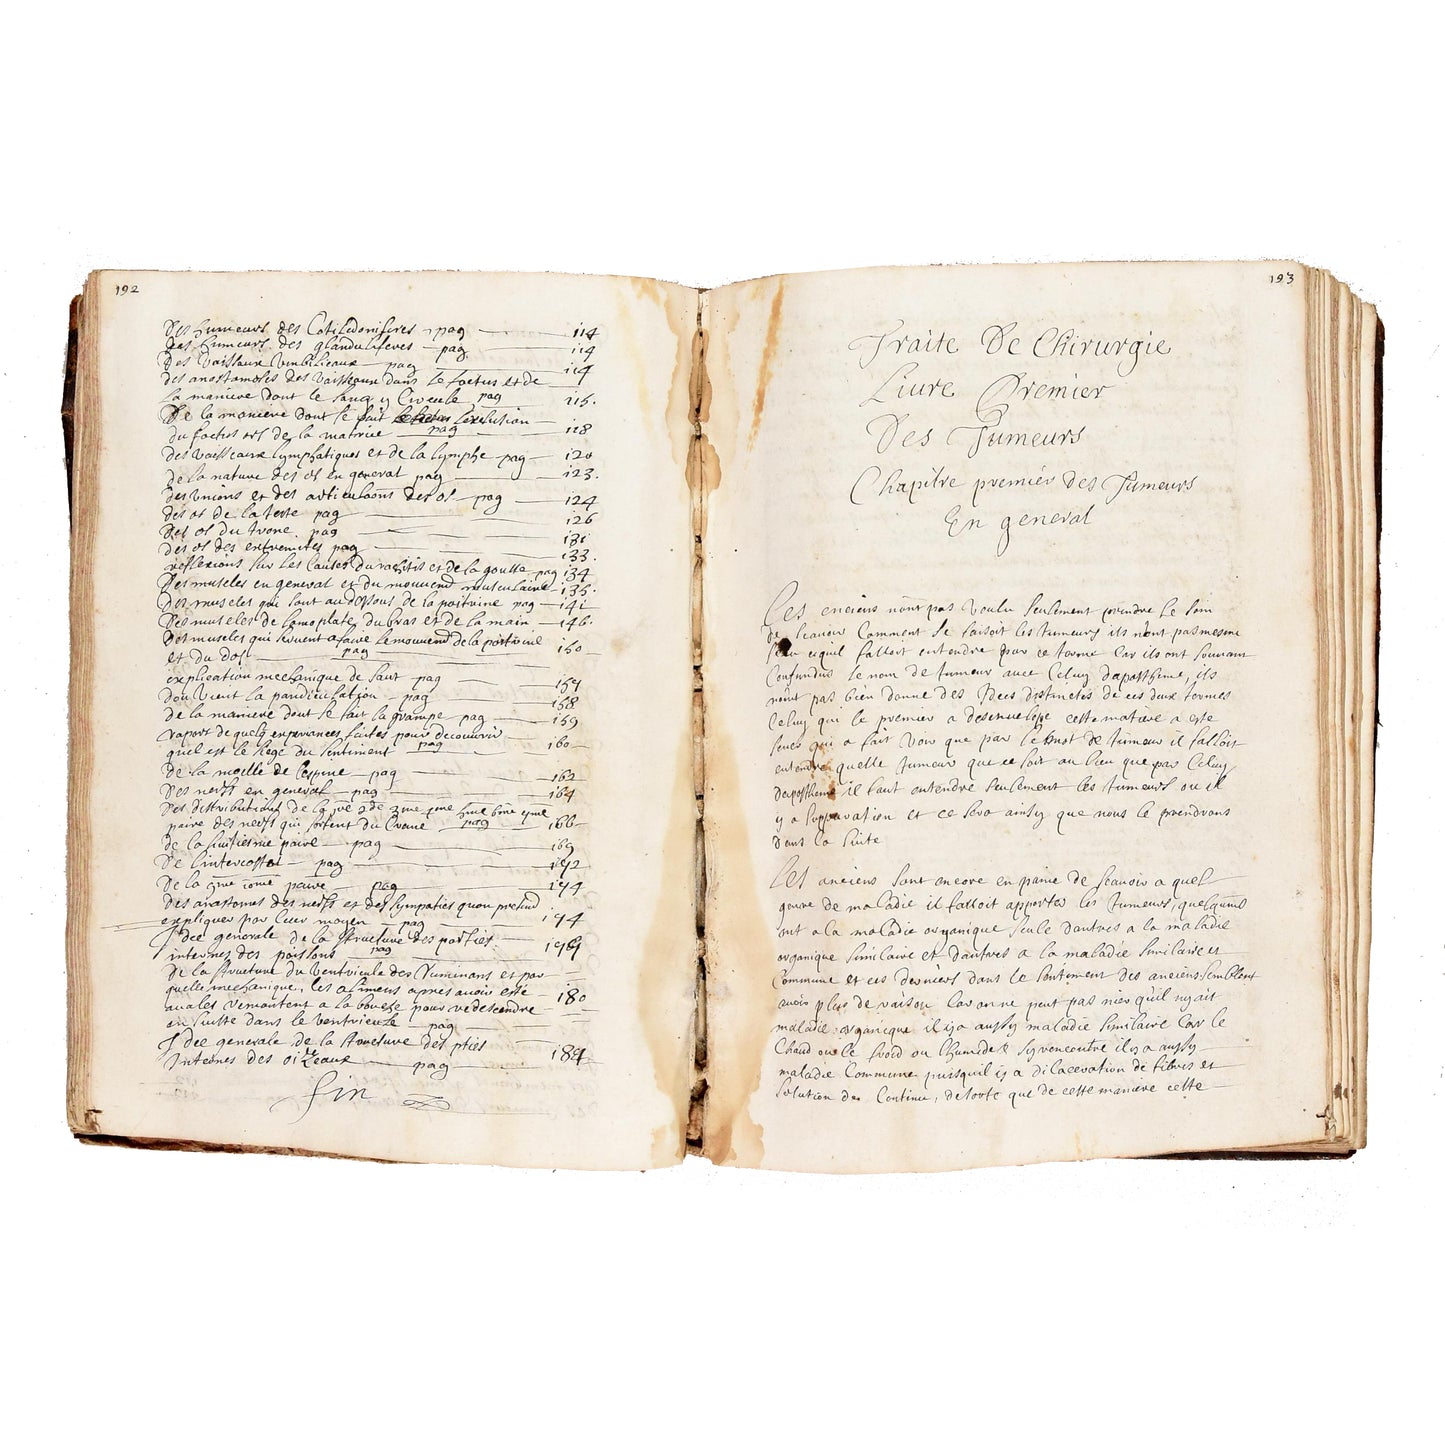 192
Des humeurs des Cotiledoniferes pag 114
Des humeurs des glanduliferes pag 114
Des Vaisseaux umbilicaux pag 114
Des anostomoses des Vaisseaux dans le foetus et de
la maniere dont le sang y Circule pag 115.
De la moniere dont se fait l'exclusion
du foetus ors de la matrice pag 118
des vaisseaux lymphatiques et de la lymphe pag 120
de la nature des os en general pag 123.
des unions et des articulaons des os pag 124
des os de la teste pag 126
Des os du trone pag 131
des os des extremites pag 133.
reflexions sur les Causes du rachitis et de la goutte pag 134
Des muscles en general et du mouuemt musculaire 135.
Des muscles qui sont au dessous de la poitrine pag 141
Des muscles de lomoplate du bras et de la main 146.
Des muscles qui seruent a faire le mouuemt de la poitrine
et du dos pag 150
explication mechanique de saut pag 157
dou Vient la pandiculation pag 158
de la maniere dont se fait la crampe pag 159
raport de quelq experiances faites pour decouurir
quel est le siege du sentiment pag 160
de la moelle de lespine pag 162
des nerfs en general pag 164
Des distributions de la pre 2de 3me 4me 5me 6me 7me
paire des nerfs qui sortent du Crane pag 166
de la huitiesme paire pag 169
De lintercostal pag 172
De la 9me 10me paire pag 174
des anastomos des nerfs et des sympaties quon pretend
expliquer par leur moyen pag 174
Idee generale de la structure des parties
internes des poissons pag 179
De la structure du Ventricule des Ruminans et par
quelle mechanique, les alimens apres auoir esté
auales remontent a la bouche pour redescendre
en suitte dans le ventricule pag 180
Idee generale de la structure des pties
Internes des oizeaux pag 184
fin
193
Traite De Chirurgie
Liure Premier
Des Tumeurs
Chapitre premier des Tumeurs
En general
Les enciens n'ont pas voulu seulement prendre le soin
de scauoir Comment se faisoit les tumeurs ils n'ont pas mesme
sceu cequil falloit entendre par ce terme Car ils ont souuant
Confundus le nom de tumeur auec Celuy daposthéme, ils
n'ont pas bien donne des Idees distinctes de ces deux termes
Celuy qui le premier a desenuelope cette matiere a esté
seuer qui a fait voir que par le mot de tumeur il falloit
entendre quelle tumeur que ce soit au lieu que par Celuy
daposthéme il faut entendre seulement les tumeurs ou il
y a suppuration et ce sera ainsy que nous le prendrons
dans la suite
Les anciens sont encore en paine de scauoir a quel
genre de maladie il falloit apporter les tumeurs, quelquuns
ont a la maladie organique seule dautres a la maladie
organique similaire et d'autres a la maladie similaire et
Commune et ces derniers dans le sentiment des anciens semblent
auoir plus de raison Car on ne peut pas nier qu'il ny ait
maladie organique il y a aussy maladie similaire Car le
Chaud ou le froid ou l'humide sy rencontre il y a aussy
maladie Commune puisquil y a dilaceration de fibres et
solution de Continu, de sorte que de cette maniere cette